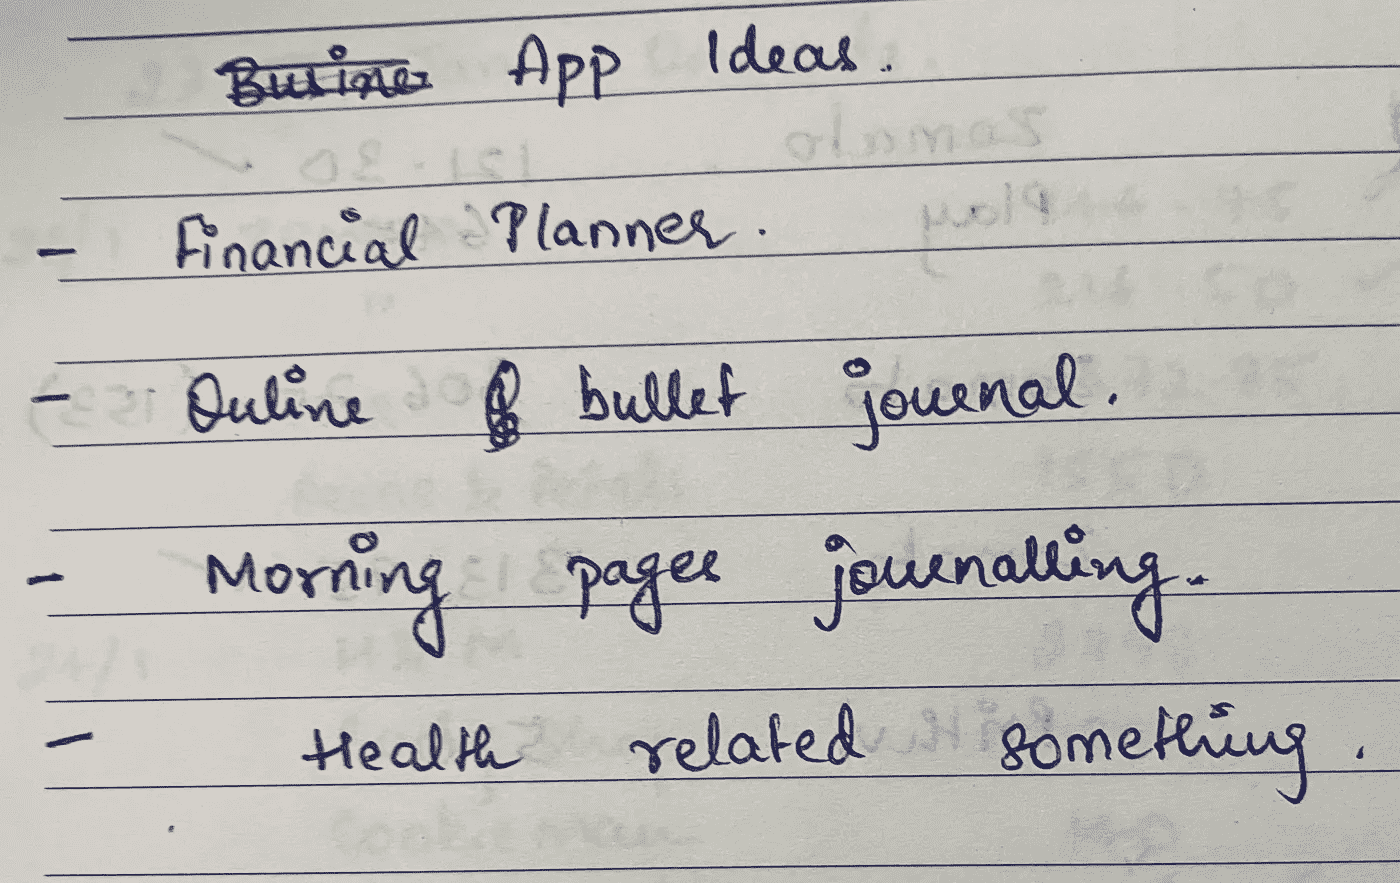 App Ideas.
- Financial Planner.
- Online bullet journal.
- Morning pages journalling.
- Health related something.